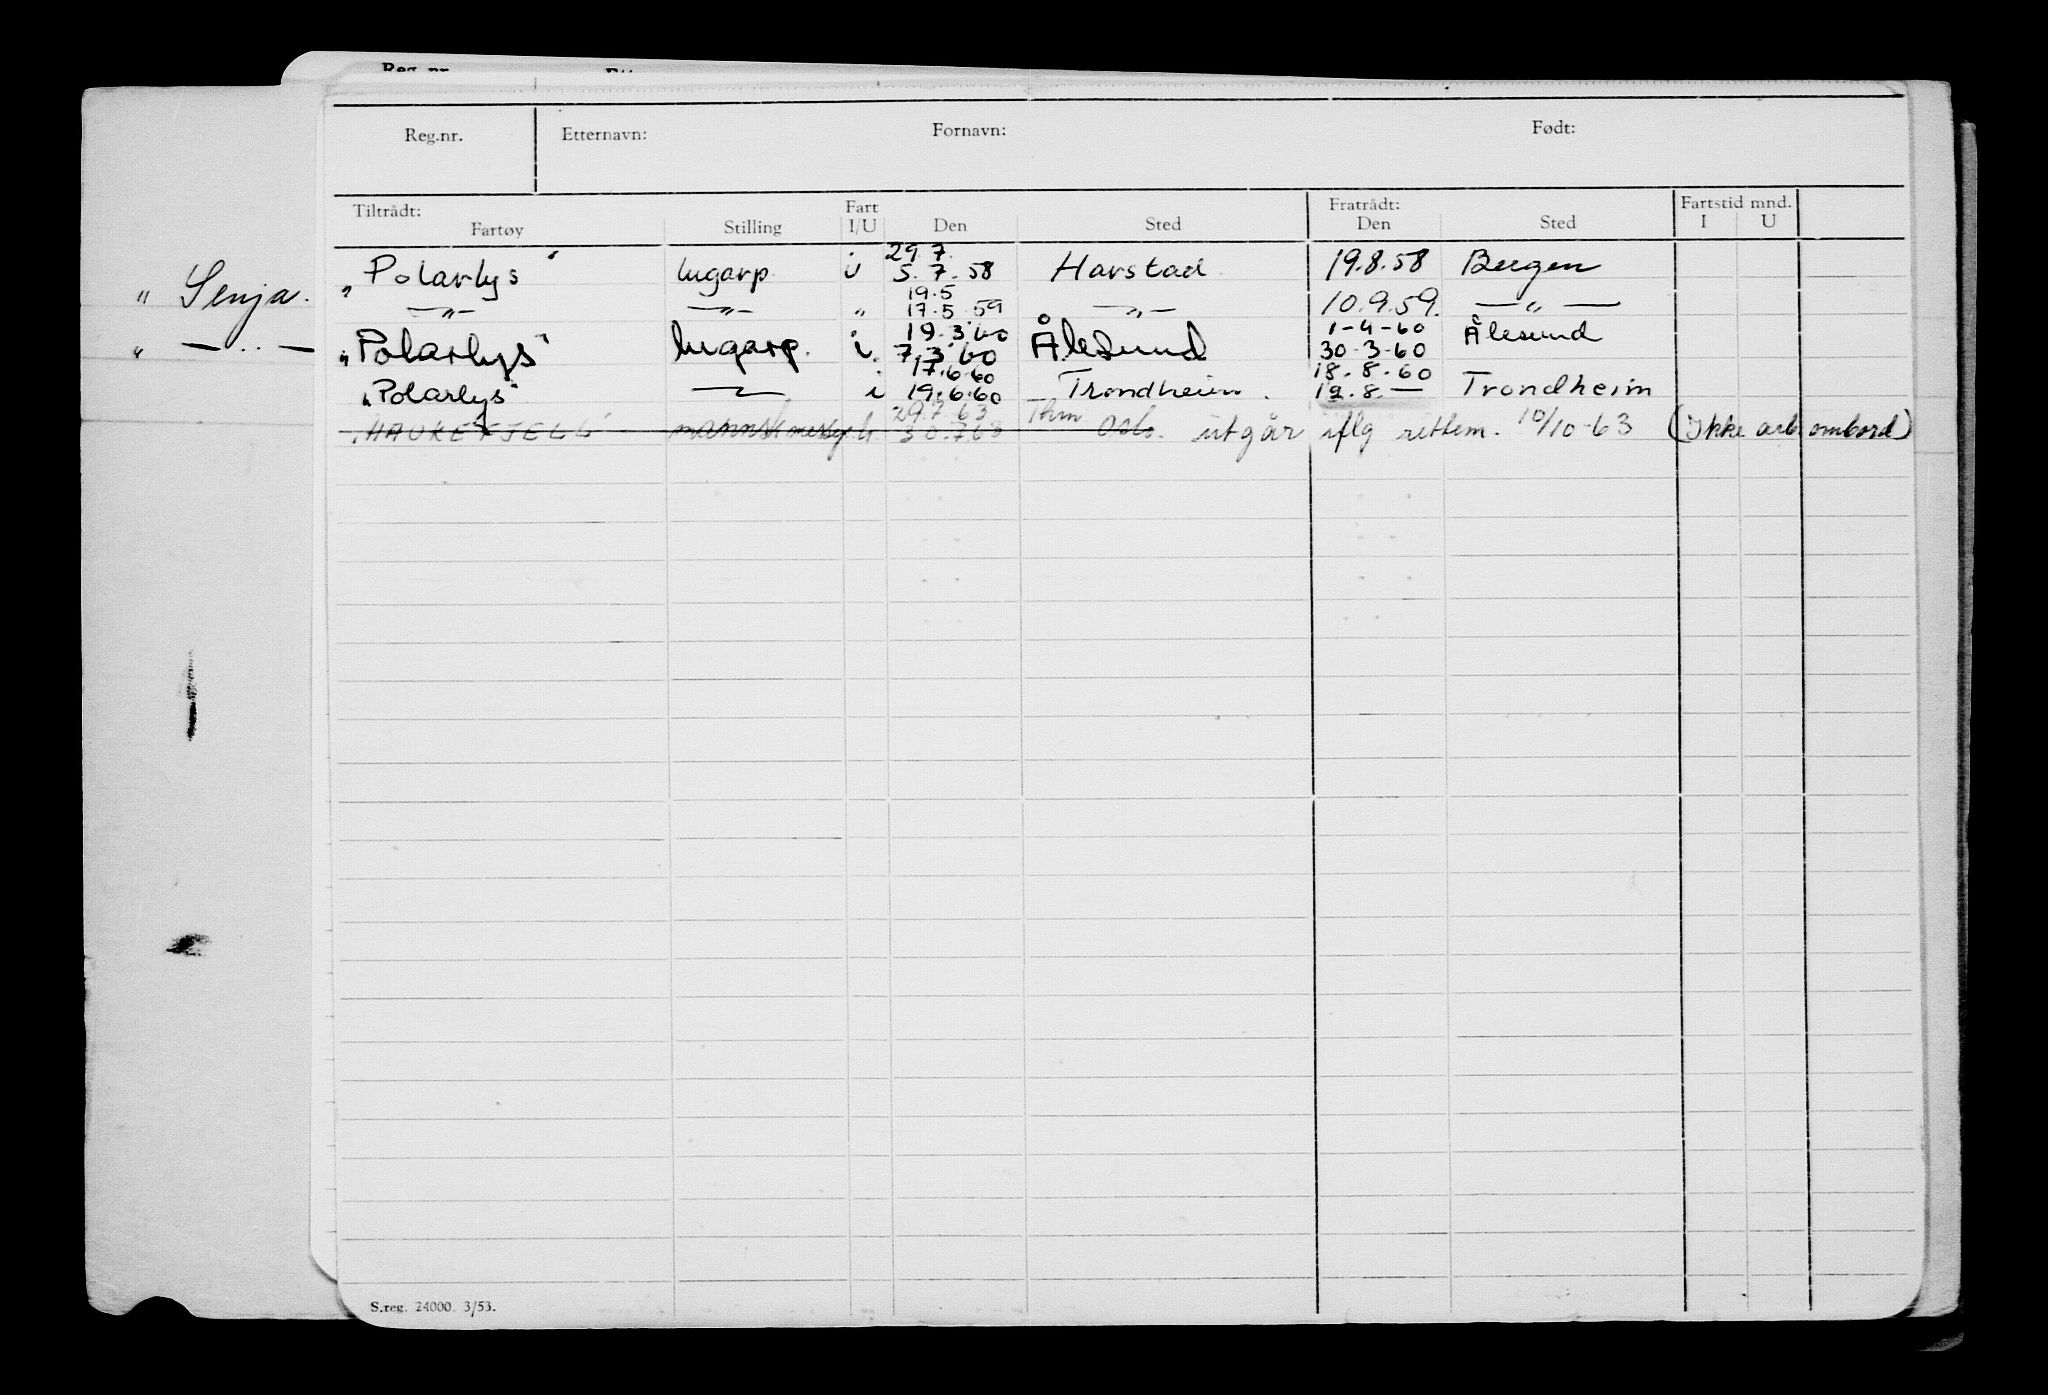 Reg.nr.
Reg.nr. Etternavn: Fornavn: Født:
Tiltrådt: Fart Fratrådt: Fartstid mnd.
Fartøy Stilling I/U Den Sted Den Sted I U
29.7.
„Polarlys" lugarp. i 5.7.58 Harstad 19.8.58 Bergen
" Senja.
19.5
—"— —"— " 17.5.59 —"— 10.9.59. —"—
19.3.60 1-4-60
" —..— „Polarlys" lugarp. i. 7.3.60 Ålesund 30-3-60 Ålesund
17.6.60 18.8.60
„Polarlys" — i 19.6.60 Trondheim. 12.8.— Trondheim
29.7.63 Thm
„HAUKEFJELL" mannsk messg. u. 30.7.63 Oslo. utgår iflg rettem. 10/10-63 (Ikke arb ombord)
S.reg. 24000. 3/53.